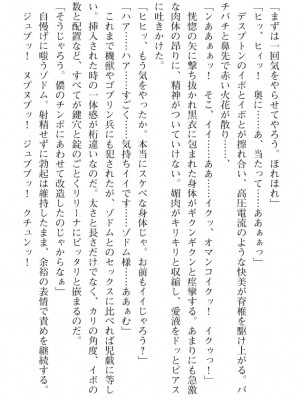 「まずは一回気をやらせてやろう。ほれほれ」
「ヒッ、ヒィッ！　奥に……あ、当たって……ああぁぁっ」
デスプトンのイボとイボとが擦れ合い、高圧電流のような快美が脊椎を駆け上がる。バ
チバチと鼻先で赤い火花が散り、
「ンああぁぁっ！　そこ、イイ……ああ……イクッ、オマンコイクッ！　イクゥっ！」
恍惚の矢に撃ち抜かれ黒衣に包まれた身体がギクンギクンと痙攣する。あまりにも急激
な肉体の昂りに、精神がついていけない。媚肉がキリキリと収縮し、愛液をドッとピアス
に吐きかけた。
「ヒヒッ、もう気をやったか。本当にスケベな身体じゃ。お前もイイじゃろう？」
「ハァ……ハァ……すご……気持ちイイです……ゾドム……ああぁむ」
これまで機獣やゴブリン兵にも犯されたが、ゾドムとのセックスに比べれば児戯に等し
い。挿入された時の一体感が桁違いなのだ。太さと長さだけでなく、カリの角度、イボの
数と配置など、すべてが鍵穴と錠のごとくリリーナにピッタリと嵌まるのだ。
「そうじゃろう。儂のチンポにあわせて改造したのじゃからなぁ」
自慢げに嗤うゾドム。射精せずに勃起は維持したまま、余裕の表情で責めを継続する。
ジュブッ！　ヌプヌプッ！　ジュブブッ！　クチュンッ！